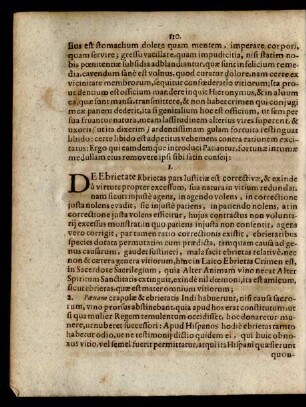 110.
lios est stomachum dolere quam mentem, imperare corpori,
quam servire, gressu vacillare quam impudicitia, nisi statim nobis
pœnitentiæ subsidia adblandiantur, quæ sunt infelicium remedia.
cavendum sanè est volnus, quod curatur dolore. nam certe ex
vicinitate membrorum, sequitur confœderatio vitiorum; sta prudentium
est officium inandere inquit Hieronymus, & in alvum ea,
quæ sunt mansa transmittere, & non habet crimen qui conjugi
meæ panem dederit, ita si genitalium hoc est officium, ut semper
sua fruantur natura, meam lassitudinem alterius vires superent, &
uxoris / ut ita dixerim / ardentissimam gulam fortuita restinguat
libido: certe libido est adpetitus vehemens contra rationem excitatus:
Ergo qui eamdem que introduci Patiantur, fortunæ intumæ
medullam ejus removere ipsi sibi satis conscij:
I.
DE Ebrietate Ebrietas pars Justitiæ est correctivæ, & exinde
à virtute propter excessum, sua natura in vitium redundar.
nam sicuti injuste agens, in agendo volens, in correctione
justa nolens evadit, sic injuste patiens, in patiendo nolens, at in
correctione justa volens efficitur, hujus contractus non voluntarij
excessu monstrat. in quo patiens injusta non consentit, agens
vero corrigit, partium ratio correctionis existit, ebrietaribus
species dotata permutatim cum præducta, tamquam causa ad genus
causarum, gaudet justitiæ. mala facit ebrietas relativè. nec
non & cætera genera vitiorum, hinc in Laico Ebrietas Crimen est.
in Sacerdote Sacrilegium, quia Alter Animam vino necat Alter
Spiritum Sanctitatis extinguit, exinde nil dæmoni, ita est amicum,
sicut ebrietas. quæ est mater omnium vitiorum;
2. Pœnam crapulæ & ebrietatis Indi habuerunt, nisi causa sacrorum,
vino prorsus abstinebant. quia apud hos erat constitutum. ut
si qua mulier Regem temulentum occidisset, hoc donaretur munere,
ut nuberet successori: Apud Hispanos hodiè ebrietas tam to
habetur odio, ut ne testimonij dictio quidem ei, qui huic obnoxius
vitio, vel semel fuerit permittatur. atqui ita Hispani quæsierunt
quon-